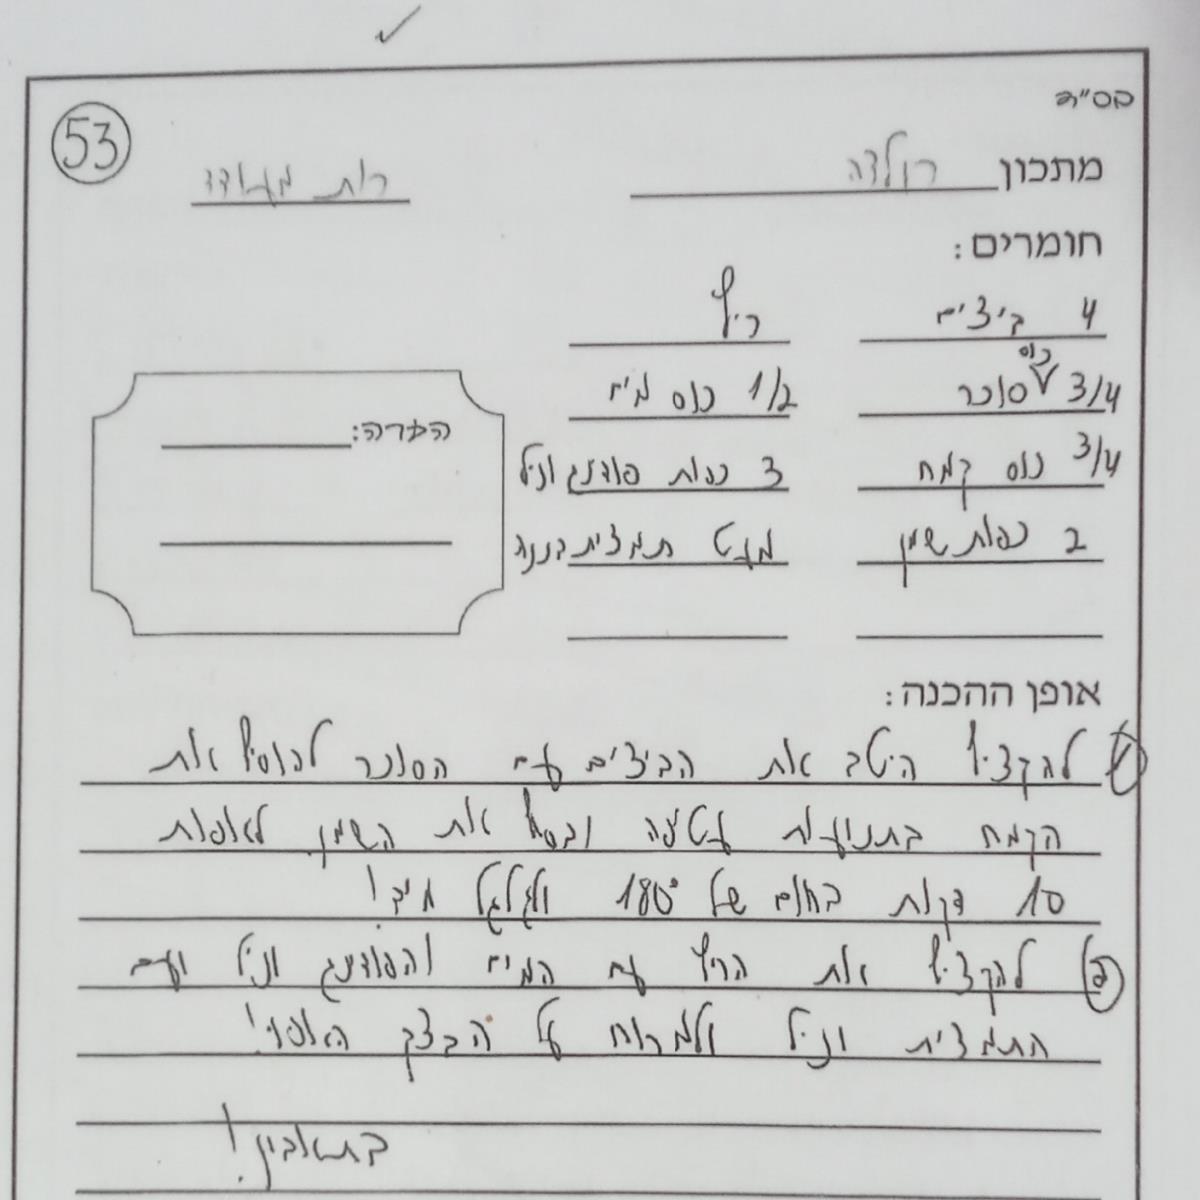 בס"ד
53
מתכון רולדה
רות מעודד
חומרים:
4 ביצים
כוס
3/4 סוכר
3/4 כוס קמח
2 כפות שמן
ריץ'
1/2 כוס מים
3 כפות פודינג וניל
מעט תמצית בננה
הערה:
אופן ההכנה:
להקציף היטב את הביצים עם הסוכר להוסיף את
הקמח בתנועות עטיפה ובסוף את השמן לאפות
10 דקות בחום של 180° ולגלגל מיד!
להקציף את הריץ' עם המים והפודינג וניל ועם
התמצית וניל ולמרוח על הבצק האפוי!
בתאבון!